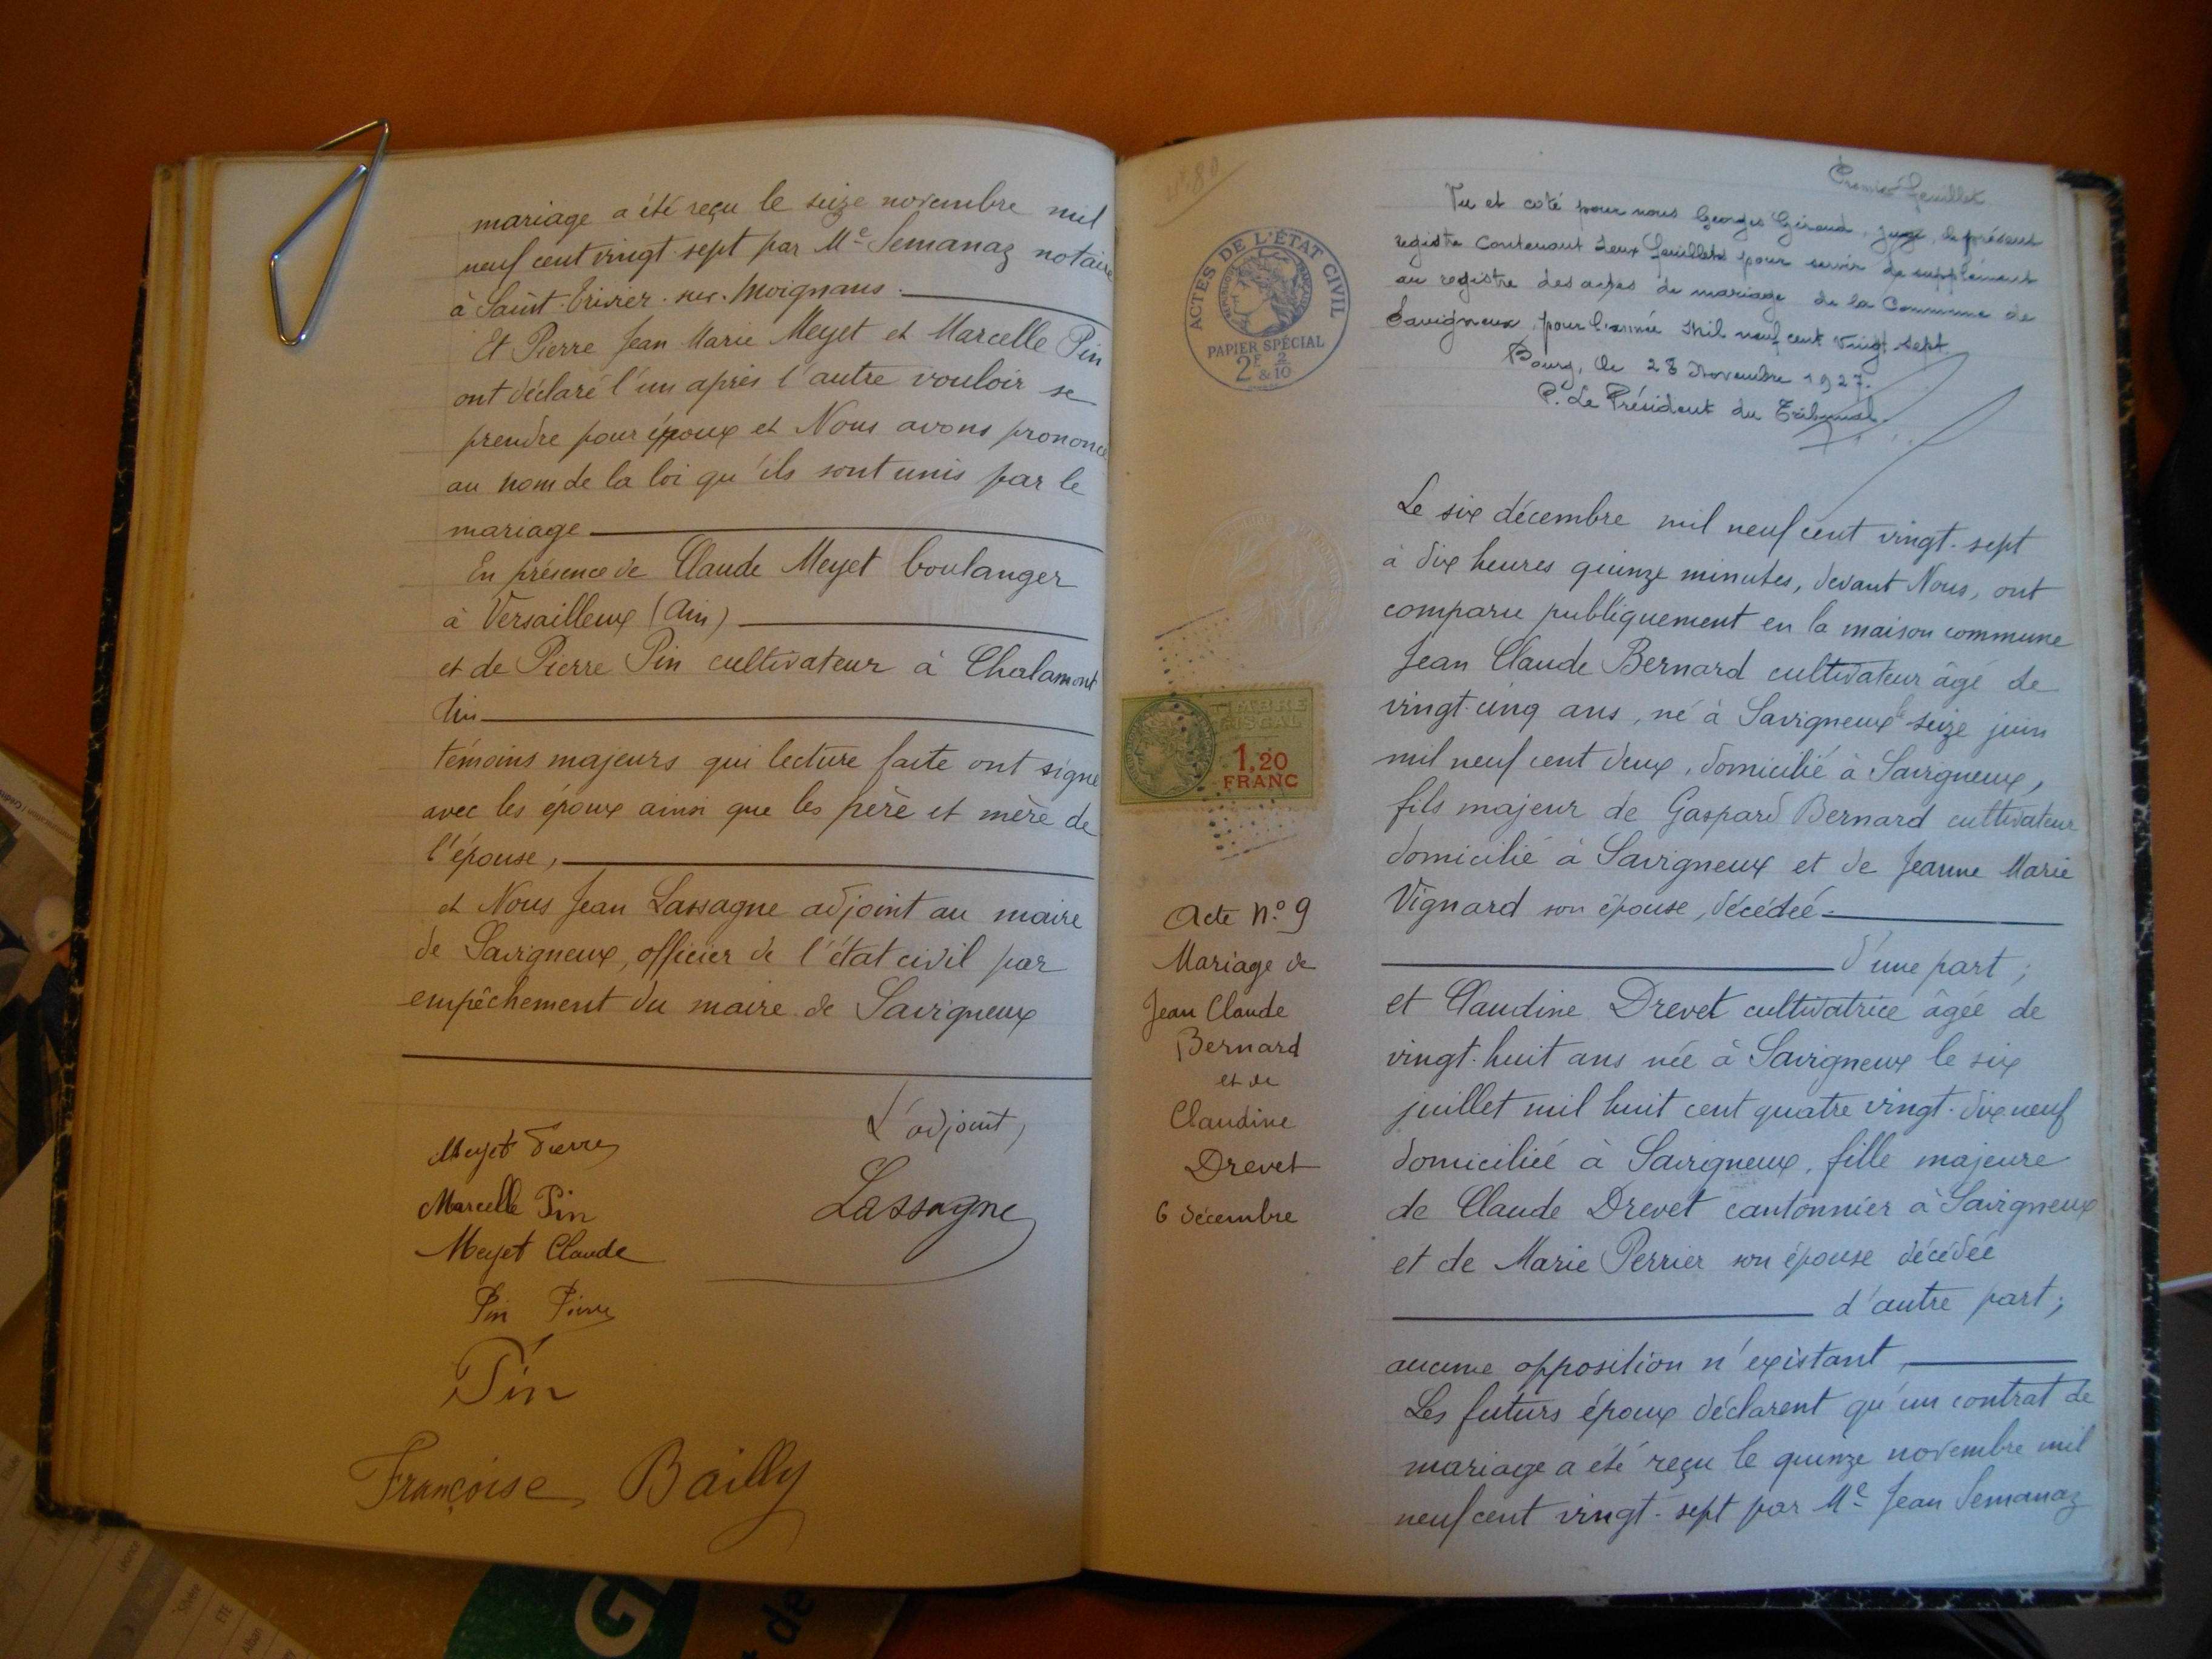 mariage a été reçu le seize novembre mil
neuf cent vingt-sept par Me Semanaz notaire
à Saint-Trivier-sur-Moignans.
Et Pierre Jean Marie Meyet et Marcelle Pin
ont déclaré l'un après l'autre vouloir se
prendre pour époux et Nous avons prononcé
au nom de la loi qu'ils sont unis par le
mariage
En présence de Claude Meyet boulanger
à Versailleux (Ain)
et de Pierre Pin cultivateur à Chalamont
Ain
témoins majeurs qui lecture faite ont signé
avec les époux ainsi que les père et mère de
l'épouse,
et Nous Jean Lassagne adjoint au maire
de Savigneux, officier de l'état civil par
empêchement du maire de Savigneux
L'adjoint,
Meyet Pierre
Marcelle Pin
Lassagne
Meyet Claude
Pin Pierre
Pin
Françoise Bailly
N° 80
ACTES DE L'ÉTAT CIVIL
PAPIER SPÉCIAL
2F 2/10
&
TIMBRE
FISCAL
1,20
FRANC
Acte N° 9
Mariage de
Jean Claude
Bernard
et de
Claudine
Drevet
6 décembre
Premier feuillet
Vu et coté pour nous Georges Giraud, juge, le présent
registre contenant deux feuillets pour servir de supplément
au registre des actes de mariage de la Commune de
Savigneux, pour l'année Mil neuf cent vingt sept.
Bourg, le 28 Novembre 1927.
P. Le Président du Tribunal.
Le six décembre mil neuf cent vingt-sept
à dix heures quinze minutes, devant Nous, ont
comparu publiquement en la maison commune
Jean Claude Bernard cultivateur âgé de
vingt-cinq ans, né à Savigneux le seize juin
mil neuf cent deux, domicilié à Savigneux,
fils majeur de Gaspard Bernard cultivateur
domicilié à Savigneux et de Jeanne Marie
Vignard son épouse, décédée.
d'une part;
et Claudine Drevet cultivatrice âgée de
vingt-huit ans née à Savigneux le six
juillet mil huit cent quatre vingt-dix neuf
domiciliée à Savigneux, fille majeure
de Claude Drevet cantonnier à Savigneux
et de Marie Perrier son épouse décédée
d'autre part;
aucune opposition n'existant,
Les futurs époux déclarent qu'un contrat de
mariage a été reçu le quinze novembre mil
neuf cent vingt-sept par Me Jean Semanaz